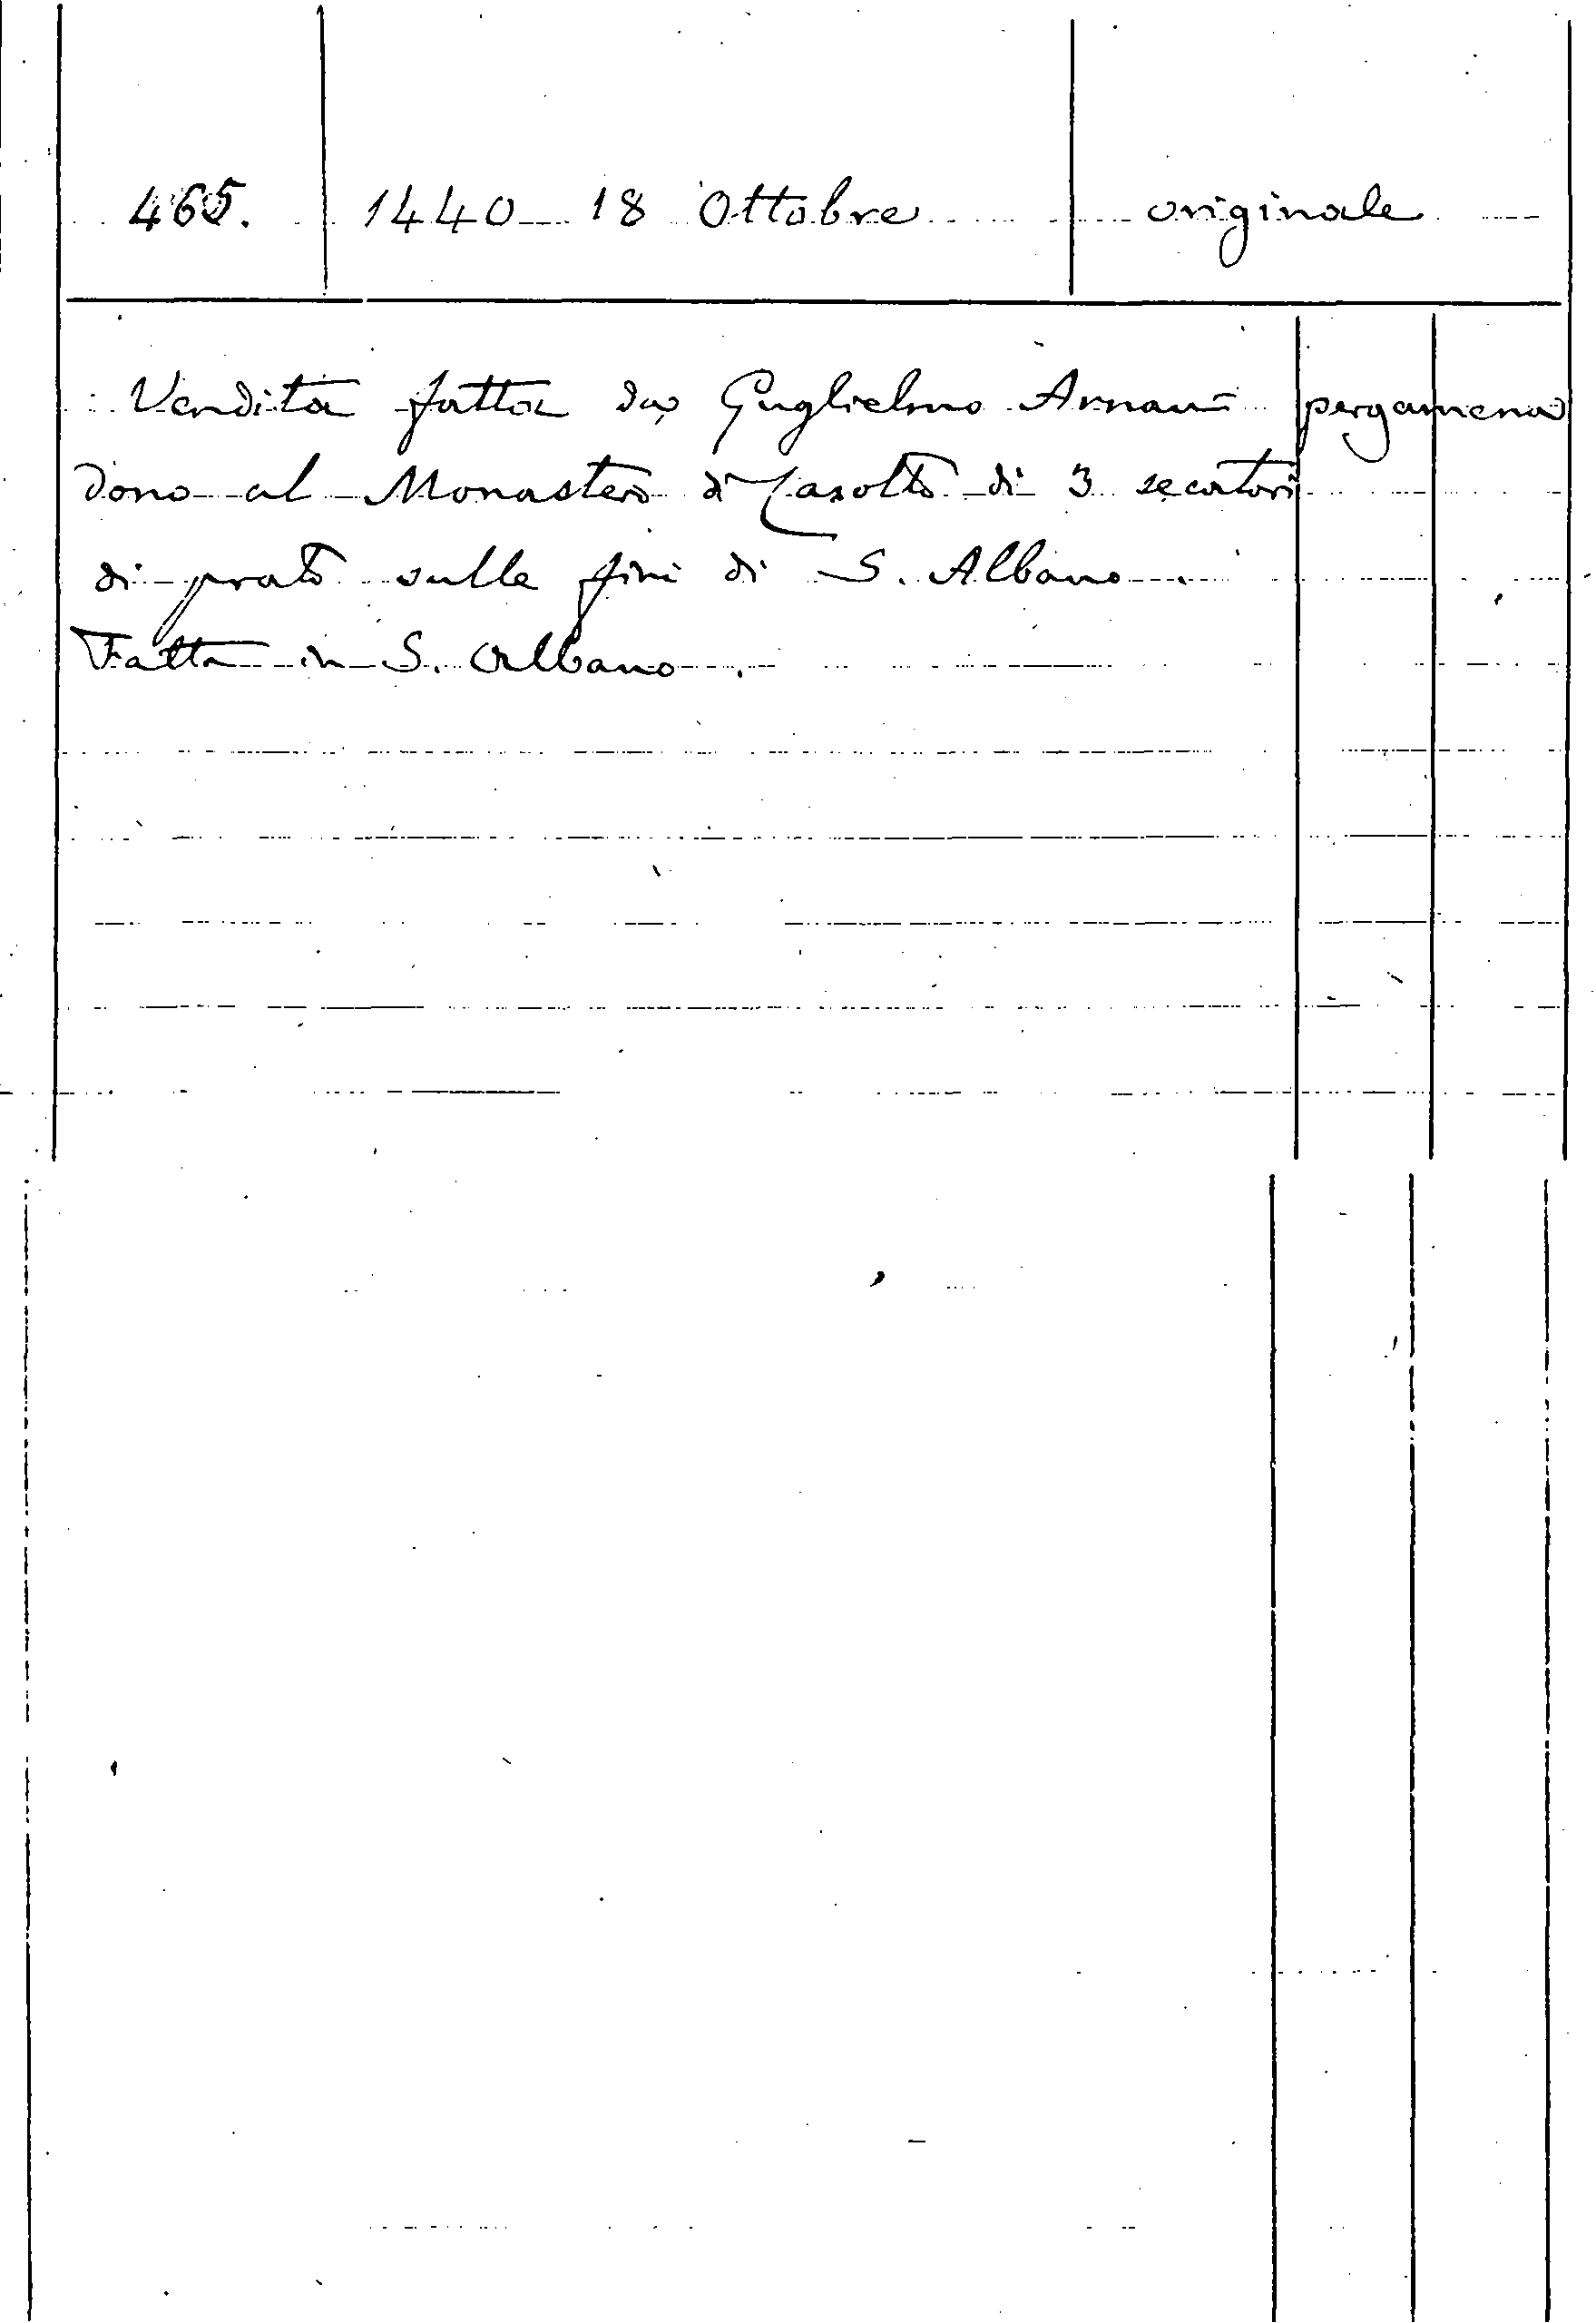 465. 1440 18 Ottobre originale
Vendita fatta da Guglielmo Arnau= pergamena
dono al Monastero di Casotto di 3 secatori
di prato sulle fini di S. Albano.
Fatta in S. Albano.